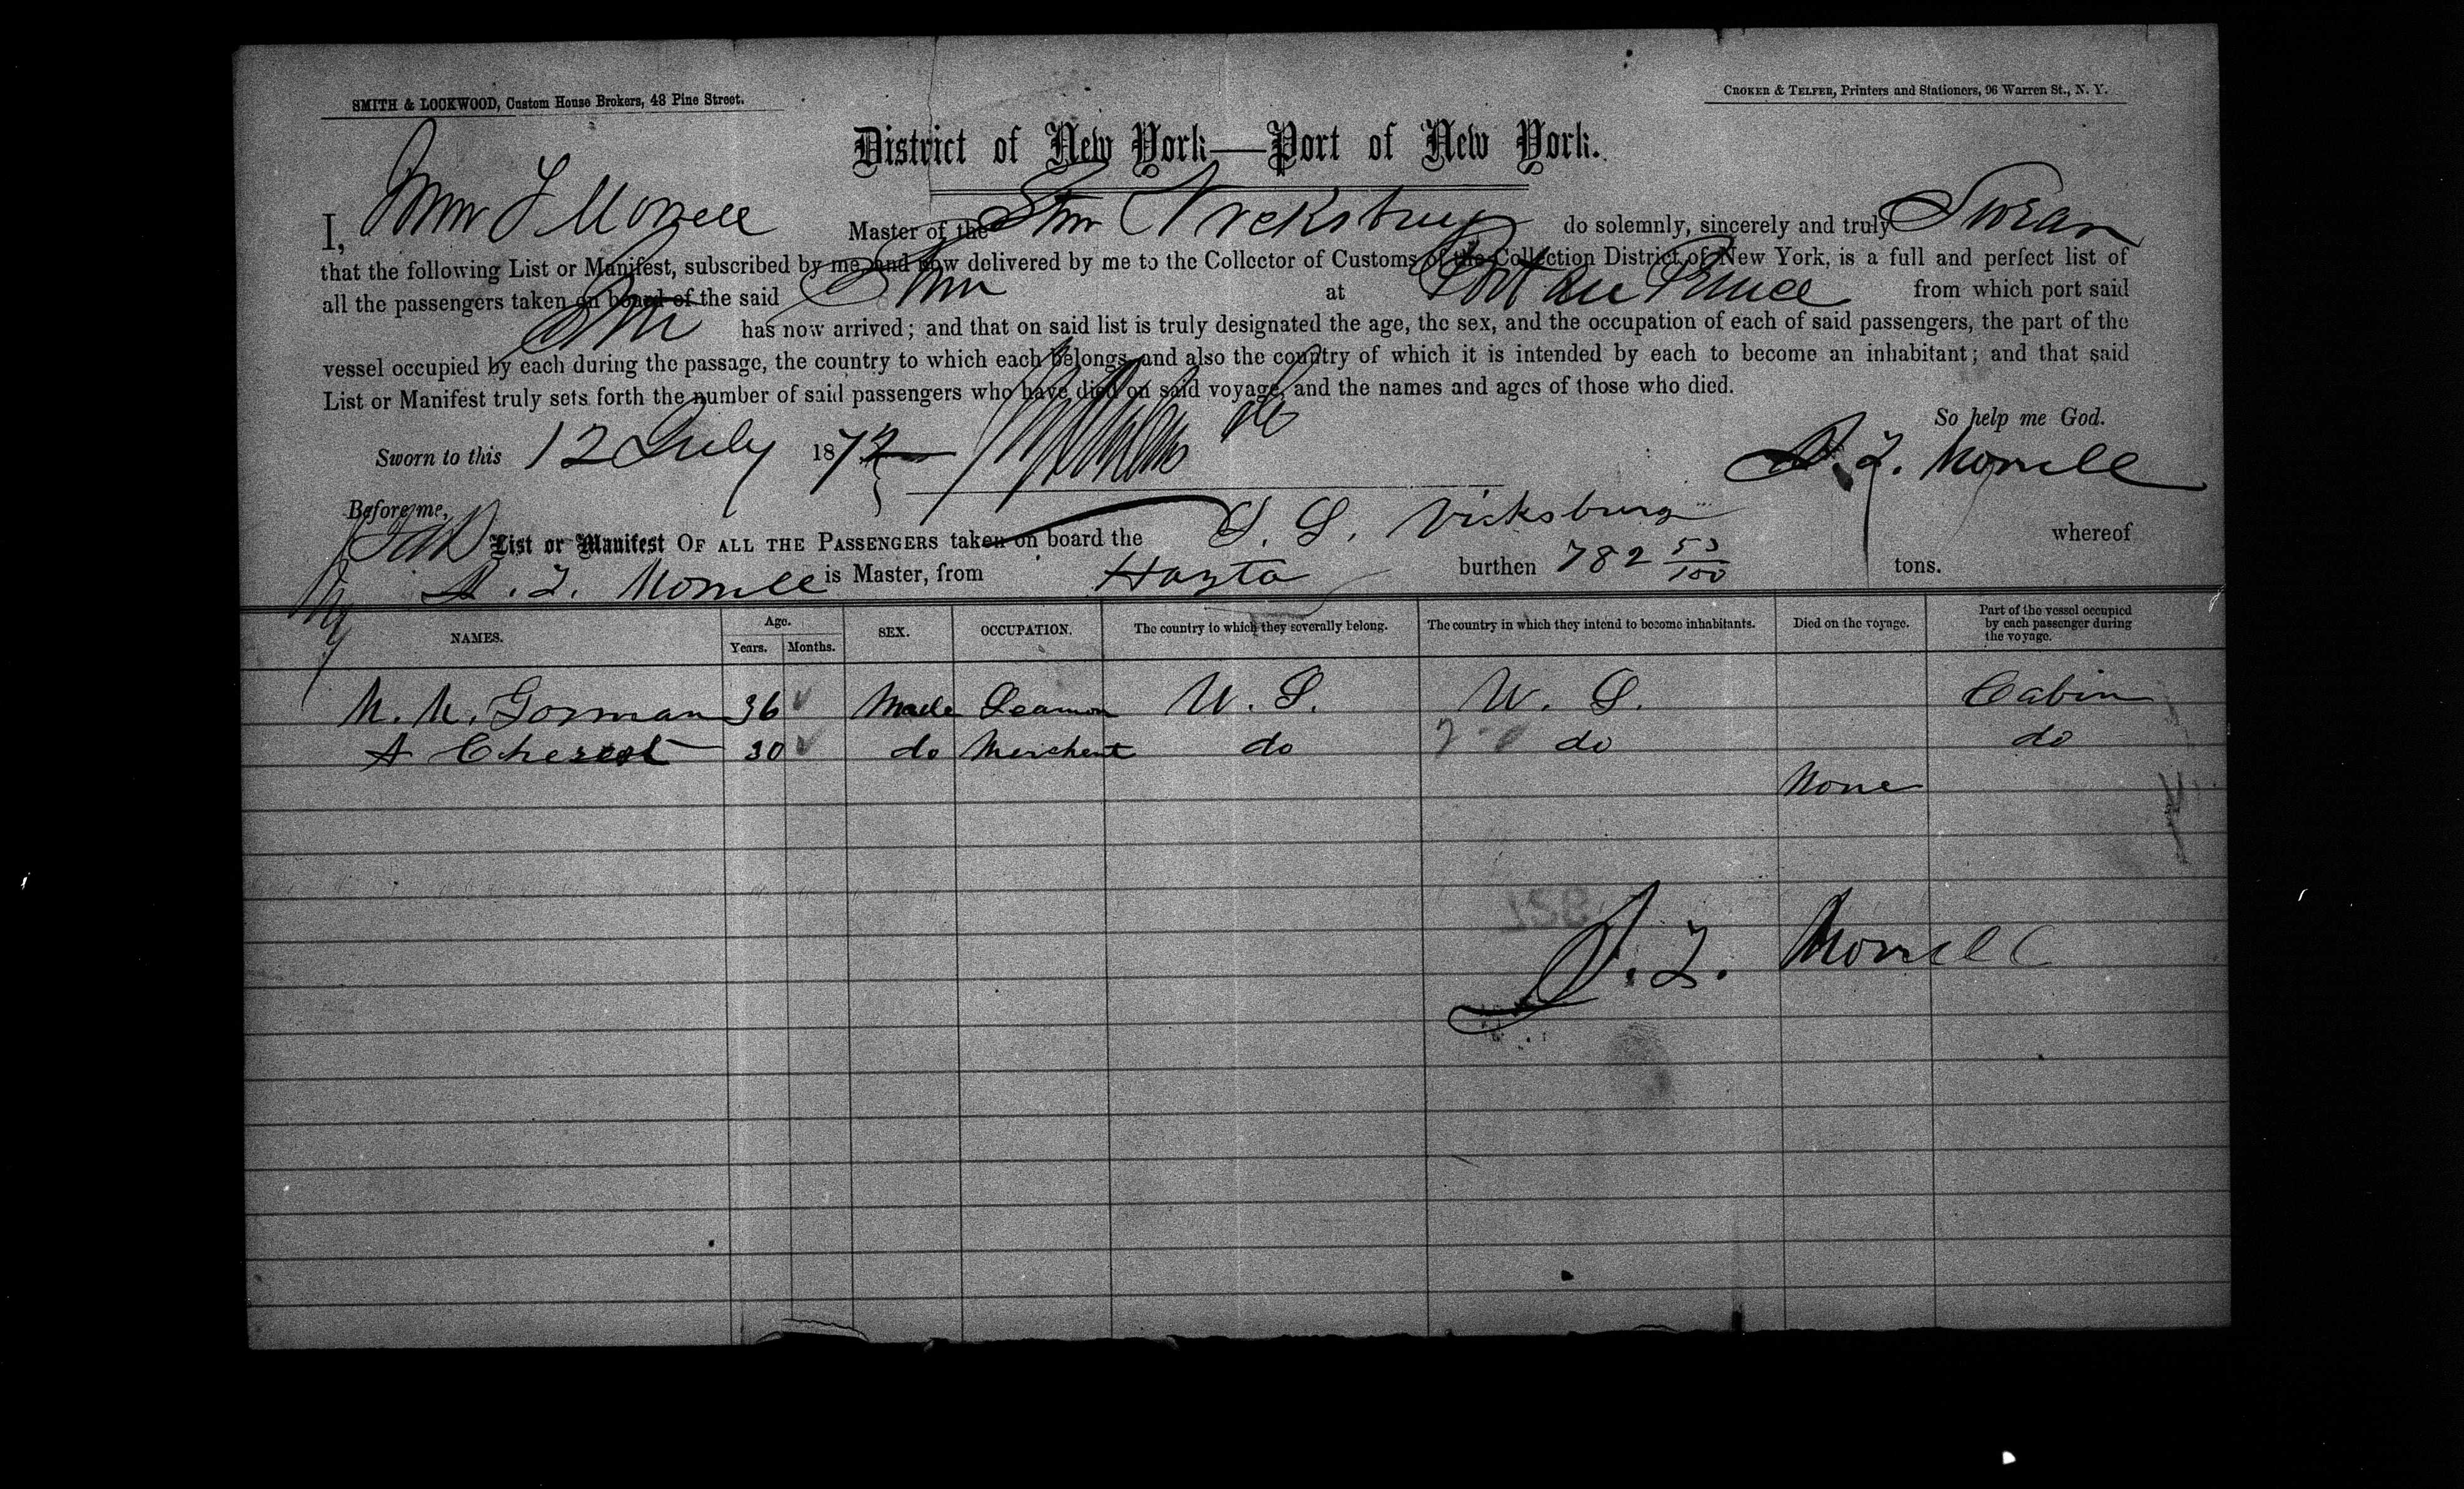 SMITH & LOCKWOOD, Custom House Brokers, 48 Pine Street.
CROKER & TELFER, Printers and Stationers, 96 Warren St., N. Y.
District of New York—Port of New York.
I, Morrell Master of the Stm Vicksburg do solemnly, sincerely and truly Swear
that the following List or Manifest, subscribed by me, and now delivered by me to the Collector of Customs of the Collection District of New York, is a full and perfect list of
all the passengers taken on board of the said Stm at Port au Prince from which port said
Stm has now arrived; and that on said list is truly designated the age, the sex, and the occupation of each of said passengers, the part of the
vessel occupied by each during the passage, the country to which each belongs, and also the country of which it is intended by each to become an inhabitant; and that said
List or Manifest truly sets forth the number of said passengers who have died on said voyage, and the names and ages of those who died.
So help me God.
Sworn to this 12 July 1872 Morrell
Before me,
List or Manifest OF ALL THE PASSENGERS taken on board the S. S. Vicksburg whereof
Morrell is Master, from Hayta burthen 782 53/100 tons.
NAMES. Age. Years. Months. SEX. OCCUPATION. The country to which they severally belong. The country in which they intend to become inhabitants. Died on the voyage. Part of the vessel occupied by each passenger during the voyage.
Gorman 36 Male Seaman U. S. U. S. Cabin
A 30 do Merchant do do do
None
Morrell